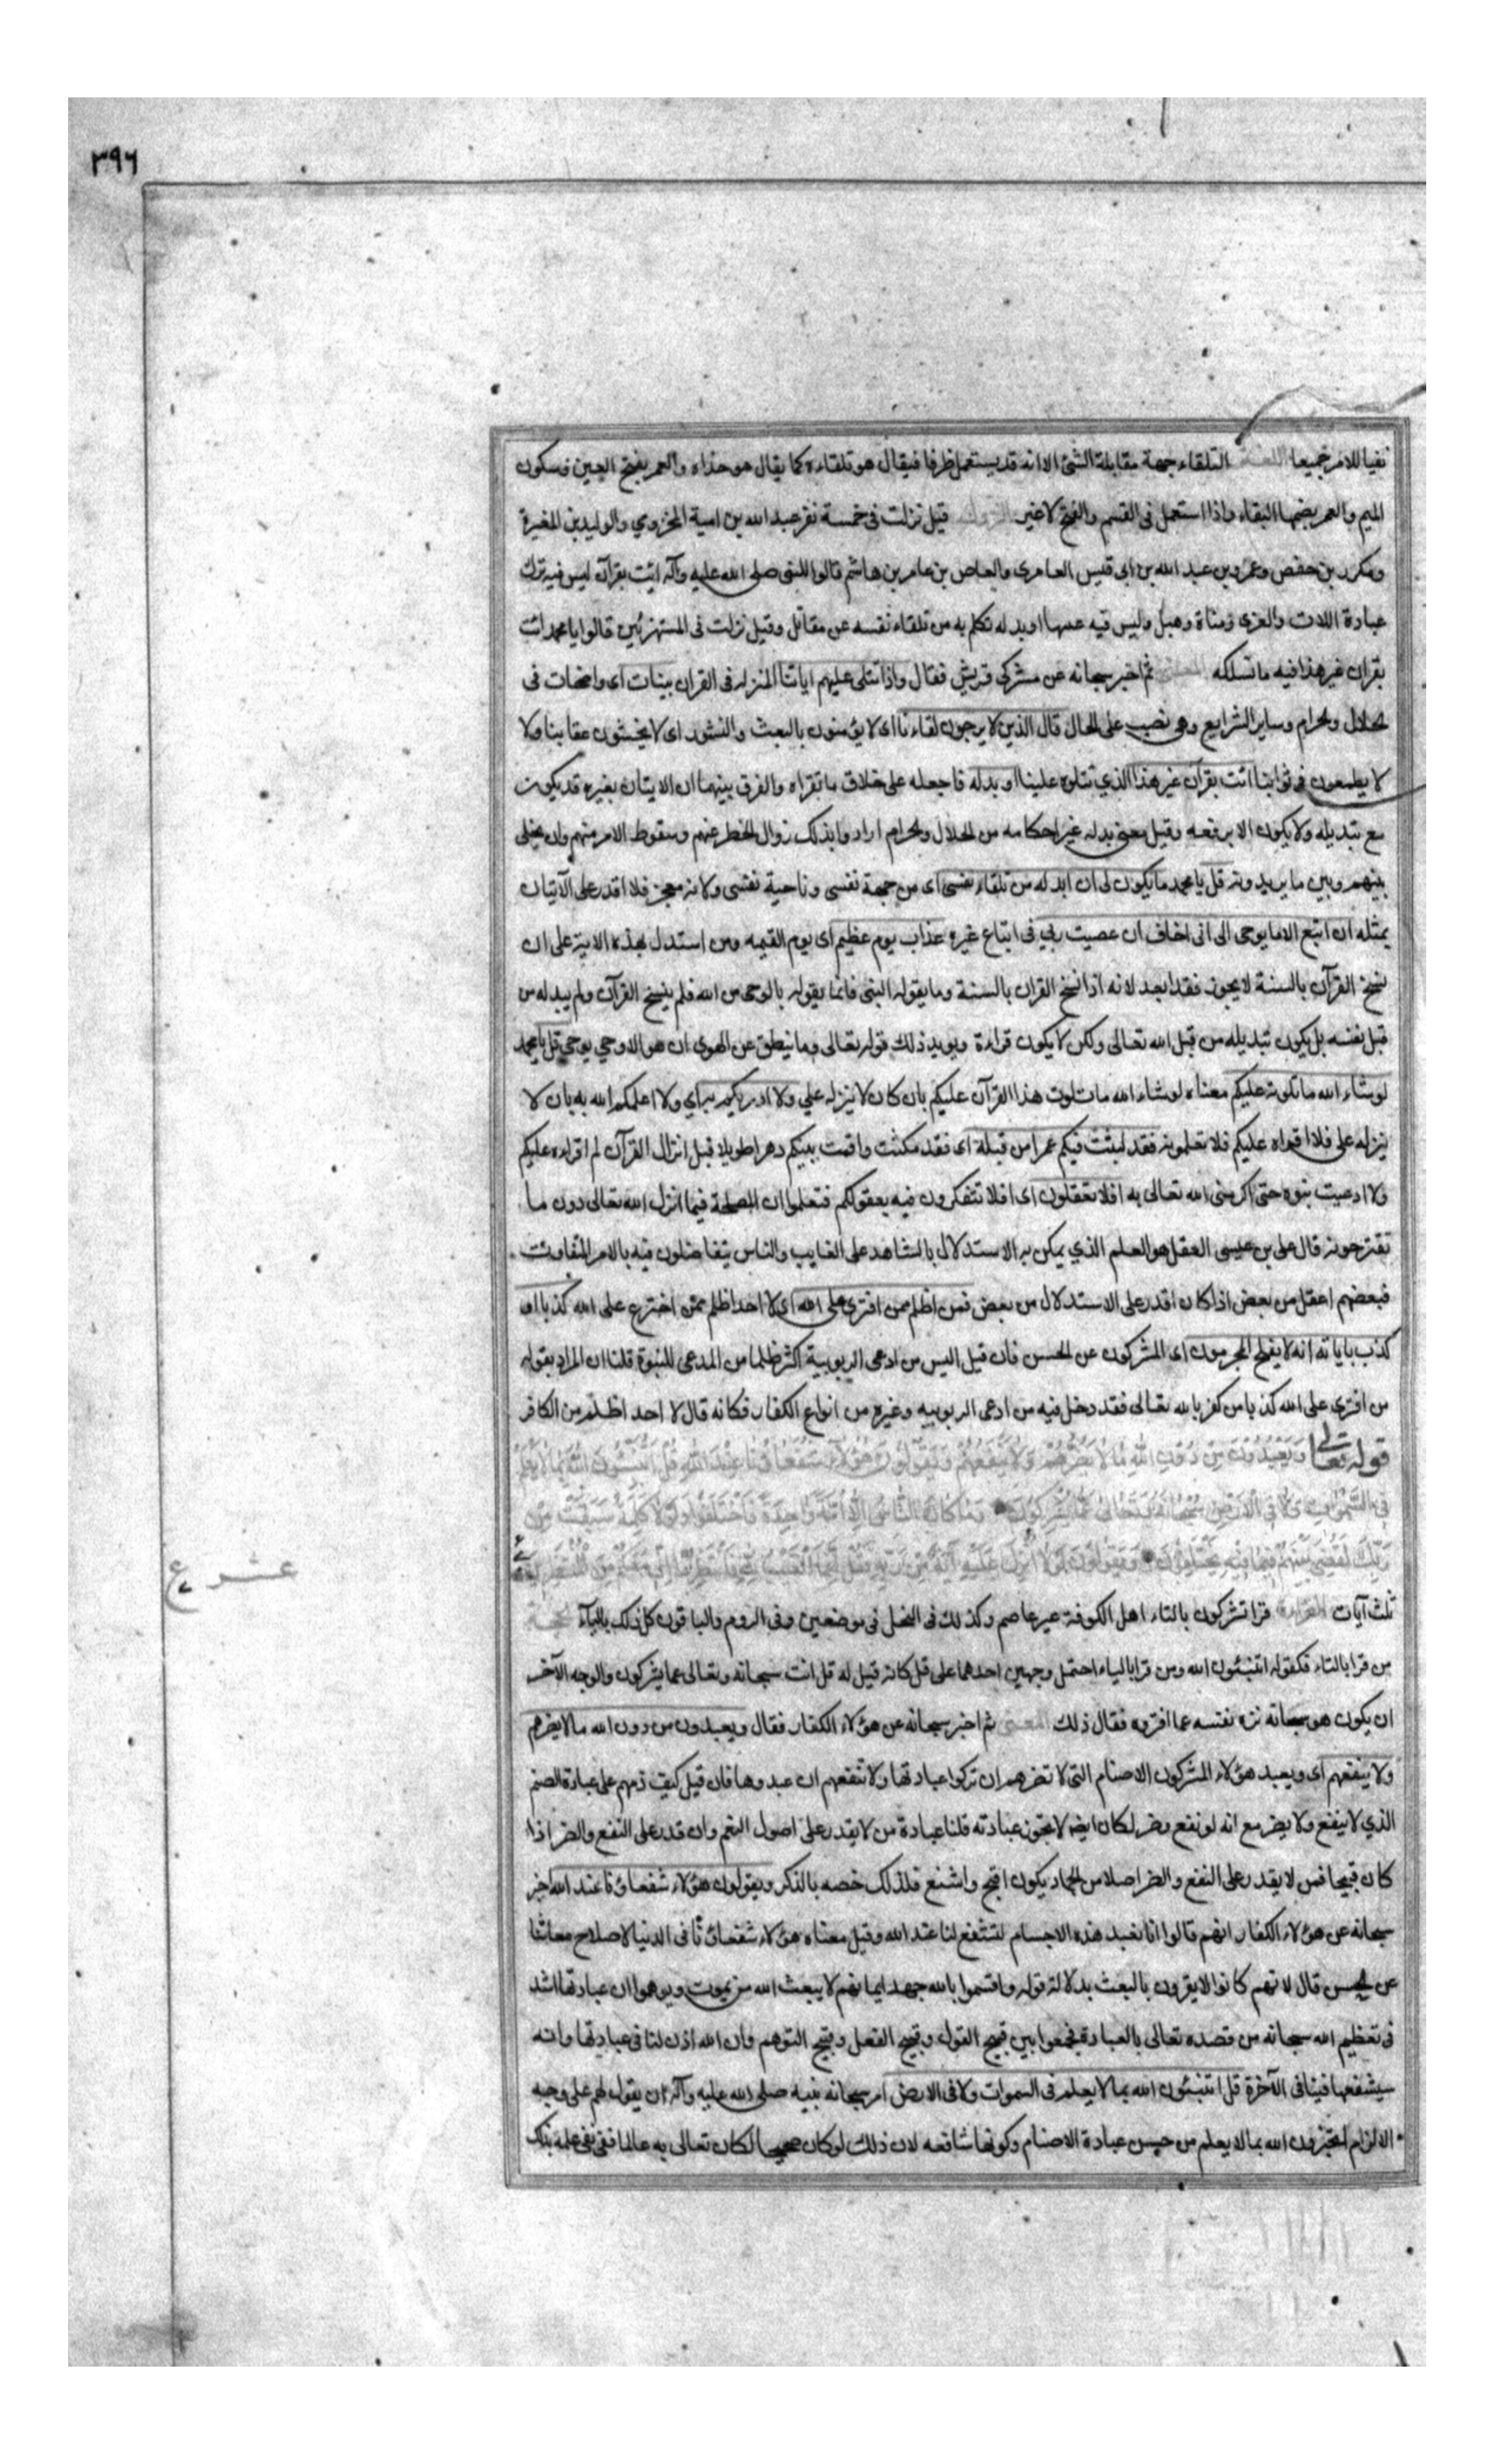 ٣٩٦
نفيا للامر جميعا اللغة التلقاء جهة مقابلة الشئ الا انه قد يستعمل ظرفا فيقال هو تلقاءه كما يقال هو حذاءه والعمر بفتح العين وسكون
الميم والعمر بضمها البقاء واذا استعمل فى القسم والفتح لا غير النزول قيل نزلت فى خمسة نفر عبد الله بن امية المخزومي والوليد بن المغيرة
ومكرد بن حفص وعمرو بن عبد الله بن ابى قيس العامرى والعاص بن عامر بن هاشم قالوا للنبى صلى الله عليه وآله ائت بقرآن ليس فيه ترك
عبادة اللات والعزى ومناة وهبل وليس فيه عيبها او بدله تكلم به من تلقاء نفسه عن مقاتل وقيل نزلت فى المستهزئين قالوا يا محمد ائت
بقران غير هذا فيه ما نسلكه المعنى ثم اخبر سبحانه عن مشركى قريش فقال واذا تتلى عليهم اياتنا المنزله فى القران بينات اى واضحات فى
الحلال والحرام وساير الشرايع وهى نصب على الحال قال الذين لا يرجون لقاءنا اى لا يؤمنون بالبعث والنشور اى لا يخشون عقابنا ولا
لا يطمعون فى ثوابنا ائت بقرآن غير هذا الذي تتلوه علينا او بدله فاجعله على خلاف ما تقراه والفرق بينهما ان الاتيان بغيره قد يكون
مع تبديله ولا يكون الا برفعه وقيل معنى بدله غير احكامه من الحلال والحرام ارادوا بذلك زوال الخطر عنهم وسقوط الامر منهم وان يخلى
بينهم وبين ما يريدونه قل يا محمد ما يكون لى ان ابدله من تلقاء نفسى اى من جهة نفسى وناحية نفسى ولانه معجز فلا اقدر على الآتيان
بمثله ان اتبع الا ما يوحى الى انى اخاف ان عصيت ربي فى اتباع غيره عذاب يوم عظيم اى يوم القيمه ومن استدل بهذه الاية على ان
نسخ القرآن بالسنة لا يجوز فقد ابعد لانه اذا نسخ القران بالسنة وما يقوله النبى فانما يقوله بالوحى من الله فلم ينسخ القرآن ولم يبدله من
قبل نفسه بل يكون تبديله من قبل الله تعالى ولكن لا يكون قراءة ويويد ذلك قوله تعالى وما ينطق عن الهوى ان هو الا وحي يوحي قل يا محمد
لو شاء الله ما تلوته عليكم معناه لو شاء الله ما تلوت هذا القرآن عليكم بان كان لا ينزله علي ولا ادريكم به اي ولا اعلمكم الله به بان لا
ينزله على فلا اقراه عليكم فلا تعلمونه فقد لبثت فيكم عمرا من قبله اى فقد مكثت واقمت بينكم دهرا طويلا قبل انزال القرآن لم اقراه عليكم
ولا ادعيت نبوة حتى اكرمنى الله تعالى به افلا تعقلون اى افلا تتفكرون فيه بعقولكم فتعلموا ان المصلحة فيما انزل الله تعالى دون ما
تقترحونه قال على بن عيسى العقل هو العلم الذي يمكن به الاستدلال بالشاهد على الغايب والناس يتفاضلون فيه بالامر المتفاوت
فبعضهم اعقل من بعض اذا كان اقدر على الاستدلال من بعض فمن اظلم ممن افترى على الله اى لا احد اظلم ممن اخترع على الله كذبا او
كذب باياته انه لا يفلح المجرمون اى المشركون عن الحسن فان قيل اليس من ادعى الربوبية اكثر ظلما من المدعى للنبوة قلنا ان المراد بقوله
من افترى على الله كذبا من كفر بالله تعالى فقد دخل فيه من ادعى الربوبيه وغيره من انواع الكفار فكانه قال لا احد اظلم من الكافر
قوله تعالى وَيَعْبُدُونَ مِنْ دُونِ اللهِ مَا لَا يَضُرُّهُمْ وَلَا يَنْفَعُهُمْ وَيَقُولُونَ هٰؤُلَاءِ شُفَعَاؤُنَا عِنْدَ اللهِ قُلْ اَتُنَبِّئُونَ اللهَ بِمَا لَا يَعْلَمُ
فِى السَّمٰوَاتِ وَلَا فِى الْاَرْضِ سُبْحَانَهُ وَتَعَالٰى عَمَّا يُشْرِكُونَ وَمَا كَانَ النَّاسُ اِلَّا اُمَّةً وَاحِدَةً فَاخْتَلَفُوا وَلَوْلَا كَلِمَةٌ سَبَقَتْ مِنْ
رَبِّكَ لَقُضِىَ بَيْنَهُمْ فِيمَا فِيهِ يَخْتَلِفُونَ وَيَقُولُونَ لَوْلَا اُنْزِلَ عَلَيْهِ آيَةٌ مِنْ رَبِّهِ فَقُلْ اِنَّمَا الْغَيْبُ لِلّٰهِ فَانْتَظِرُوا اِنِّى مَعَكُمْ مِنَ الْمُنْتَظِرِينَ
عشر ع
ثلث آيات القراءة قرا تشركون بالتاء اهل الكوفة غير عاصم وكذلك فى النحل فى موضعين وفى الروم والباقون كل ذلك بالياء الحجة
من قرا بالتاء فكقوله اتنبئون الله ومن قرا بالياء احتمل وجهين احدهما على قل كانه قيل له قل انت سبحانه وتعالى عما يشركون والوجه الآخر
ان يكون هو سبحانه نزه نفسه عما افتروه فقال ذلك المعنى ثم اخبر سبحانه عن هؤلاء الكفار فقال ويعبدون من دون الله ما لا يضرهم
ولا ينفعهم اى ويعبد هؤلاء المشركون الاصنام التى لا تضرهم ان تركوا عبادتها ولا تنفعهم ان عبدوها فان قيل كيف ذمهم على عبادة الصنم
الذي لا ينفع ولا يضر مع انه لو نفع وضر لكان ايضا لا يجوز عبادته قلنا عبادة من لا يقدر على اصول النعم وان قدر على النفع والضر اذا
كان قبيحا فمن لا يقدر على النفع والضر اصلا من الجماد يكون اقبح واشنع فلذلك خصه بالذكر ويقولون هؤلاء شفعاؤنا عند الله اخبر
سبحانه عن هؤلاء الكفار انهم قالوا انا نعبد هذه الاجسام لتشفع لنا عند الله وقيل معناه هؤلاء شفعاؤنا فى الدنيا لاصلاح معاشنا
عن الحسن قال لانهم كانوا لا يقرون بالبعث بدلالة قوله واقسموا بالله جهد ايمانهم لا يبعث الله من يموت وتوهموا ان عبادتها اشد
فى تعظيم الله سبحانه من قصده تعالى بالعبادة فجمعوا بين قبيح القول وقبيح الفعل وقبيح التوهم وان الله اذن لنا فى عبادتها وانه
سيشفعها فينا فى الآخرة قل اتنبئون الله بما لا يعلم فى السموات ولا فى الارض امر سبحانه نبيه صلى الله عليه وآله ان يقول لهم على وجه
الالزام اتخبرون الله بما لا يعلم من حسن عبادة الاصنام وكونها شافعه لان ذلك لو كان صحيحا لكان تعالى به عالما ففى نفى علمه بذلك